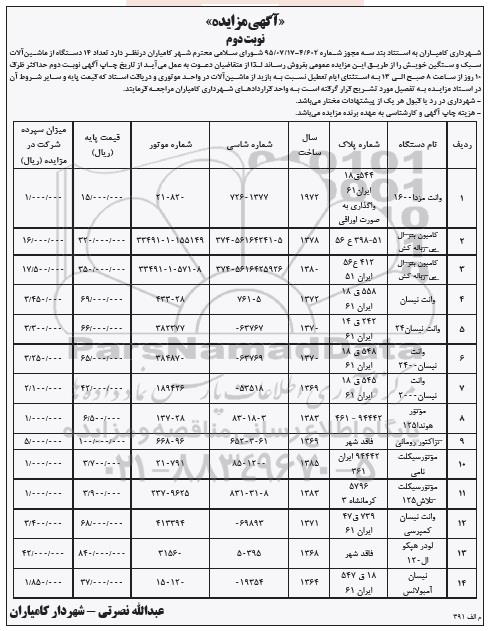 «آگهی مزایده»
نوبت دوم
شهرداری کامیاران به استناد بند سه مجوز شماره ۹۵/۰۷/۱۷-۴/۶۰۲ شورای اسلامی محترم شهر کامیاران درنظر دارد تعداد ۱۴ دستگاه از ماشین‌آلات
سبک و سنگین خویش را از طریق این مزایده عمومی بفروش رساند لذا از متقاضیان دعوت به عمل می‌آید از تاریخ چاپ آگهی نوبت دوم حداکثر ظرف
۱۰ روز از ساعت ۸ صبح الی ۱۳ به استثنای ایام تعطیل نسبت به بازدید از ماشین‌آلات در واحد موتوری و دریافت اسناد که قیمت پایه و سایر شروط آن
در اسناد مزایده به تفصیل مورد تشریح قرار گرفته است به واحد قراردادهای شهرداری کامیاران مراجعه فرمایند.
- شهرداری در رد یا قبول هر یک از پیشنهادات مختار می‌باشد.
- هزینه چاپ آگهی و کارشناسی به عهده برنده مزایده می‌باشد.
ردیف | نام دستگاه | شماره پلاک | سال ساخت | شماره شاسی | شماره موتور | قیمت پایه (ریال) | میزان سپرده شرکت در مزایده (ریال)
۱ | وانت مزدا ۱۶۰۰ | ۵۴۴ق۱۸ ایران۶۱ واگذاری به صورت اوراقی | ۱۹۷۲ | ۷۲۶۰۱۳۷۷ | ۲۱۰۸۲۰ | ۱۵/۰۰۰/۰۰۰ | ۱/۰۰۰/۰۰۰
۲ | کامیون بنز ال پی زباله کش | ۳۹۸-۵۱ ع ۵۶ | ۱۳۷۸ | ۳۷۴۰۵۶۱۶۴۲۴۱۰۵ | ۳۳۴۹۱۰۱۰۱۵۵۱۴۹ | ۳۲۰/۰۰۰/۰۰۰ | ۱۶/۰۰۰/۰۰۰
۳ | کامیون بنز ال پی زباله کش | ۴۱۲ ع۵۶ ایران ۵۱ | ۱۳۸۰ | ۳۷۴۰۵۶۱۶۴۲۵۹۲۶ | ۳۳۴۹۱۰۱۰۵۷۱۰۸ | ۳۵۰/۰۰۰/۰۰۰ | ۱۷/۵۰۰/۰۰۰
۴ | وانت نیسان | ۵۵۸ ق ۱۸ ایران ۶۱ | ۱۳۷۲ | ۷۶۱۰۵ | ۴۳۳۰۲۸ | ۶۹/۰۰۰/۰۰۰ | ۳/۴۵۰/۰۰۰
۵ | وانت نیسان۲۴ | ۲۴۲ ق ۱۴ ایران ۶۱ | ۱۳۷۰ | ۰۶۳۷۶۷ | ۳۸۲۳۷۷ | ۶۶/۰۰۰/۰۰۰ | ۳/۳۰۰/۰۰۰
۶ | وانت نیسان۲۴۰۰ | ۵۴۸ ق ۱۸ ایران ۶۱ | ۱۳۷۰ | ۰۶۳۷۶۹ | ۳۸۴۸۷۰ | ۶۵/۰۰۰/۰۰۰ | ۳/۲۵۰/۰۰۰
۷ | وانت نیسان۲۰۰۰ | ۵۴۵ ق ۱۸ ایران ۶۱ | ۱۳۶۹ | ۰۵۳۵۱۸ | ۱۸۹۴۲۶ | ۴۲/۰۰۰/۰۰۰ | ۲/۱۰۰/۰۰۰
۸ | موتور هوندا۱۲۵ | ۹۴۴۴۲ - ۴۶۱ | ۱۳۸۳ | ۸۳۰۱۸۰۳ | ۱۳۷۰۲۸ | ۶/۵۰۰/۰۰۰ | ۱/۰۰۰/۰۰۰
۹ | تراکتور رومانی | فاقد شهر | ۱۳۶۹ | ۶۵۲۰۳۰۶۱ | ۶۶۸۰۹۶ | ۱۰۰/۰۰۰/۰۰۰ | ۵/۰۰۰/۰۰۰
۱۰ | موتورسیکلت نامی | ۹۴۴۴۲ ایران ۳۶۱ | ۱۳۸۵ | ۸۵۰۱۲۰۰ | ۲۱۰۷۹۱ | ۳/۷۰۰/۰۰۰ | ۱/۰۰۰/۰۰۰
۱۱ | موتورسیکلت تلاش۱۲۵ | ۵۷۹۶ کرمانشاه ۳ | ۱۳۸۳ | ۸۳۱۰۳۱۰۸ | ۲۳۷۰۹۶۲۵ | ۳/۹۰۰/۰۰۰ | ۱/۰۰۰/۰۰۰
۱۲ | وانت نیسان کمپرسی | ۷۳۹ ق۴۷ ایران ۶۱ | ۱۳۷۱ | ۰۶۹۸۹۳ | ۴۱۳۳۹۴ | ۶۸/۰۰۰/۰۰۰ | ۳/۴۰۰/۰۰۰
۱۳ | لودر هپکو ال۱۲۰ | فاقد شهر | ۱۳۶۸ | ۵۰۳۹۵ | ۳۱۵۶۰ | ۸۴۰/۰۰۰/۰۰۰ | ۴۲/۰۰۰/۰۰۰
۱۴ | نیسان آمبولانس | ۱۸ ق ۵۴۷ ایران ۶۱ | ۱۳۶۴ | ۰۱۹۳۵۴ | ۱۵۰۱۲۰ | ۳۷/۰۰۰/۰۰۰ | ۱/۸۵۰/۰۰۰
عبدالله نصرتی – شهردار کامیاران
م الف ۳۹۱
ParsNamadData
پایگاه اطلاع رسانی مناقصه و مزایده
۰۲۱-۸۸۳۴۹۶۷۰-۵